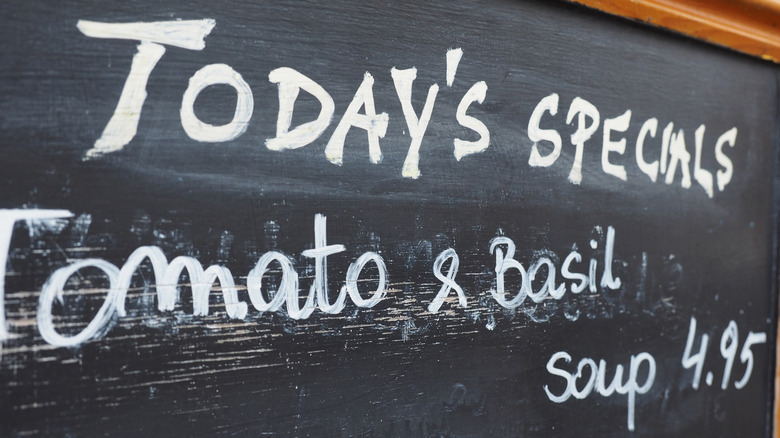 TODAY'S SPECIALS
Tomato & Basil
soup 4.95